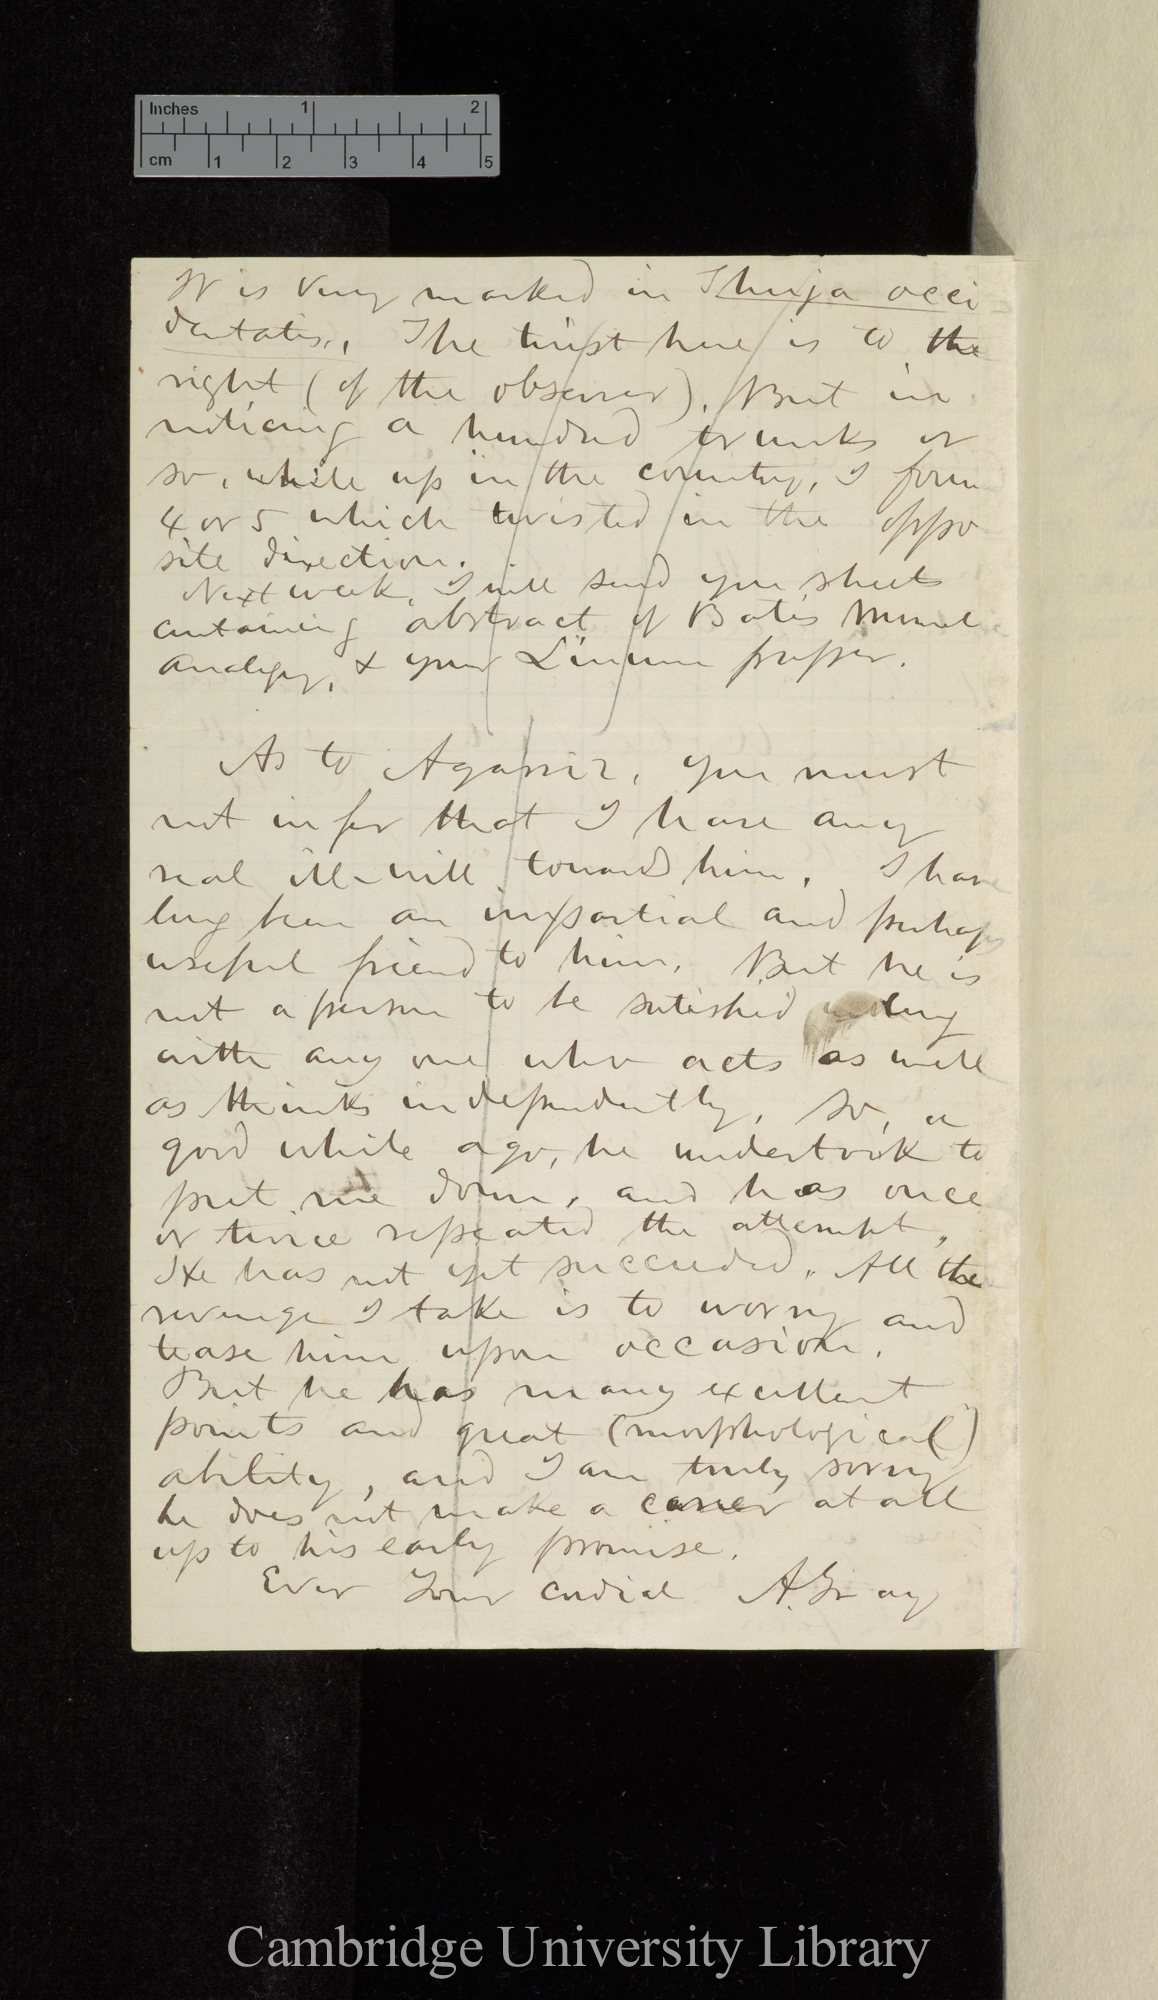 Inches 1 2
cm 1 2 3 4 5
It is very marked in Thuja occi
dentalis. The twist here is to the
right (of the observer). But in
noticing a hundred trunks or
so, while up in the country, I foun
4 or 5 which twisted in the oppo
site direction.
Next week, I will send you sheets
containing abstract of Bates Mimetic
Analogy, & your Linum paper.
As to Agassiz, you must
not infer that I have any
real ill-will towards him. I have
long been an impartial and perhaps
useful friend to him. But he is
not a person to be satisfied long
with any one who acts as well
as thinks independently. So, a
good while ago, he undertook to
put me down, and has once
or twice repeated the attempt.
He has not yet succeeded. All the
revenge I take is to worry and
tease him upon occasion.
But he has many excellent
points and great (morphological)
ability, and I am truly sorry
he does not make a career at all
up to his early promise.
Ever Your cordial A. Gray
Cambridge University Library